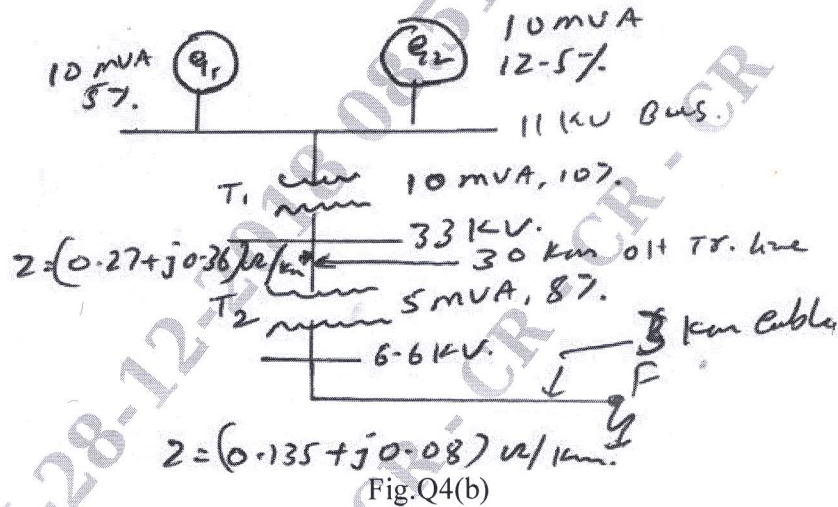 10 MVA
5%.
G1
G2
10 MVA
12.5%
11 KV Bus.
T1
10 MVA, 10%.
33 KV.
Z=(0.27+j0.36)Ω/km
30 km O/H Tr. line
T2
5 MVA, 8%.
6.6 KV.
3 km Cable
F
Z=(0.135+j0.08) Ω/km.
Fig.Q4(b)
28-12-2018 08:51
CR - CR - CR